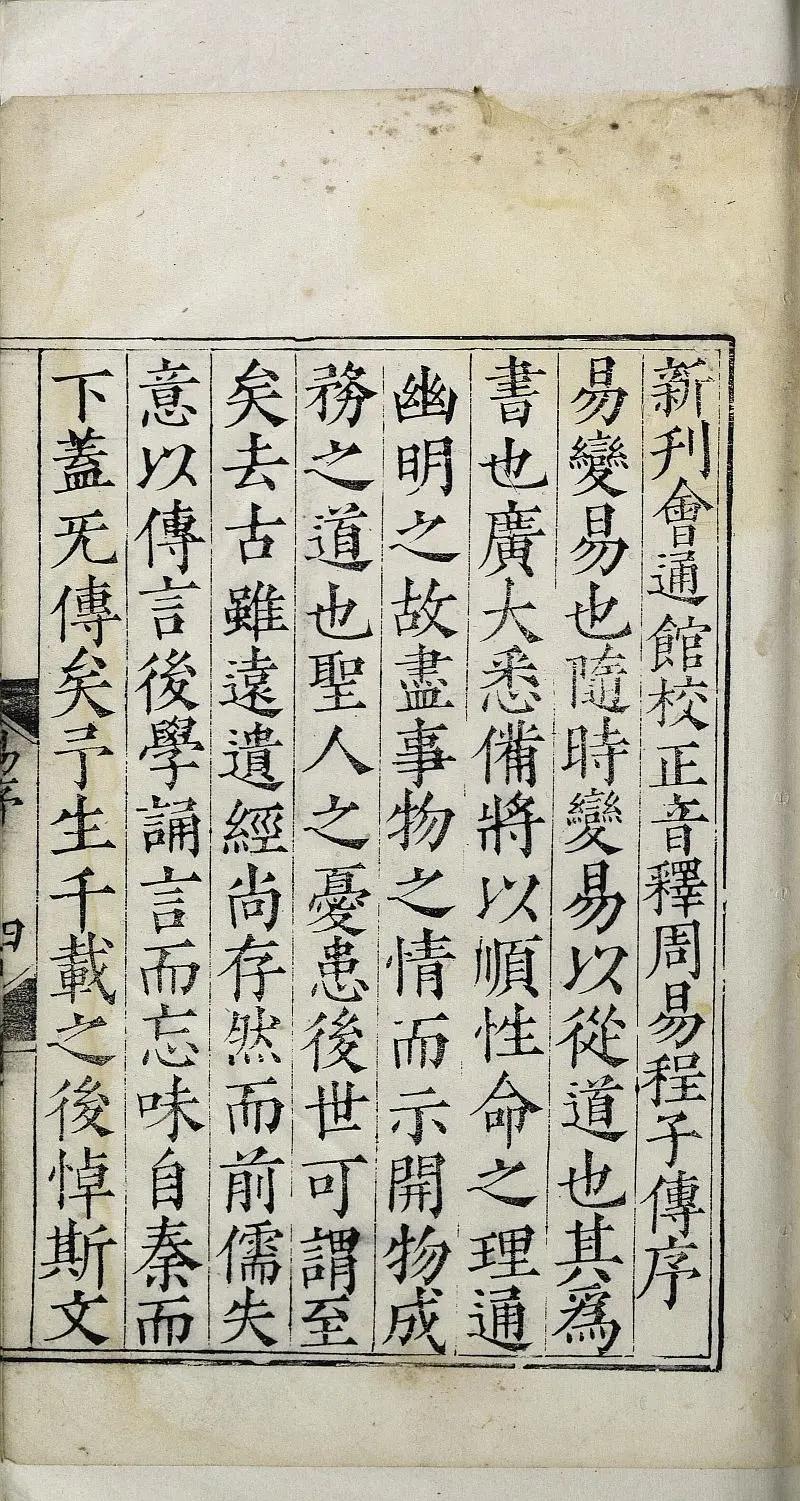 新刊會通館校正音釋周易程子傳序
易變易也隨時變易以從道也其爲
書也廣大悉備將以順性命之理通
幽明之故盡事物之情而示開物成
務之道也聖人之憂患後世可謂至
矣去古雖遠遺經尚存然而前儒失
意以傳言後學誦言而忘味自秦而
下蓋旡傳矣予生千載之後悼斯文
易序
四